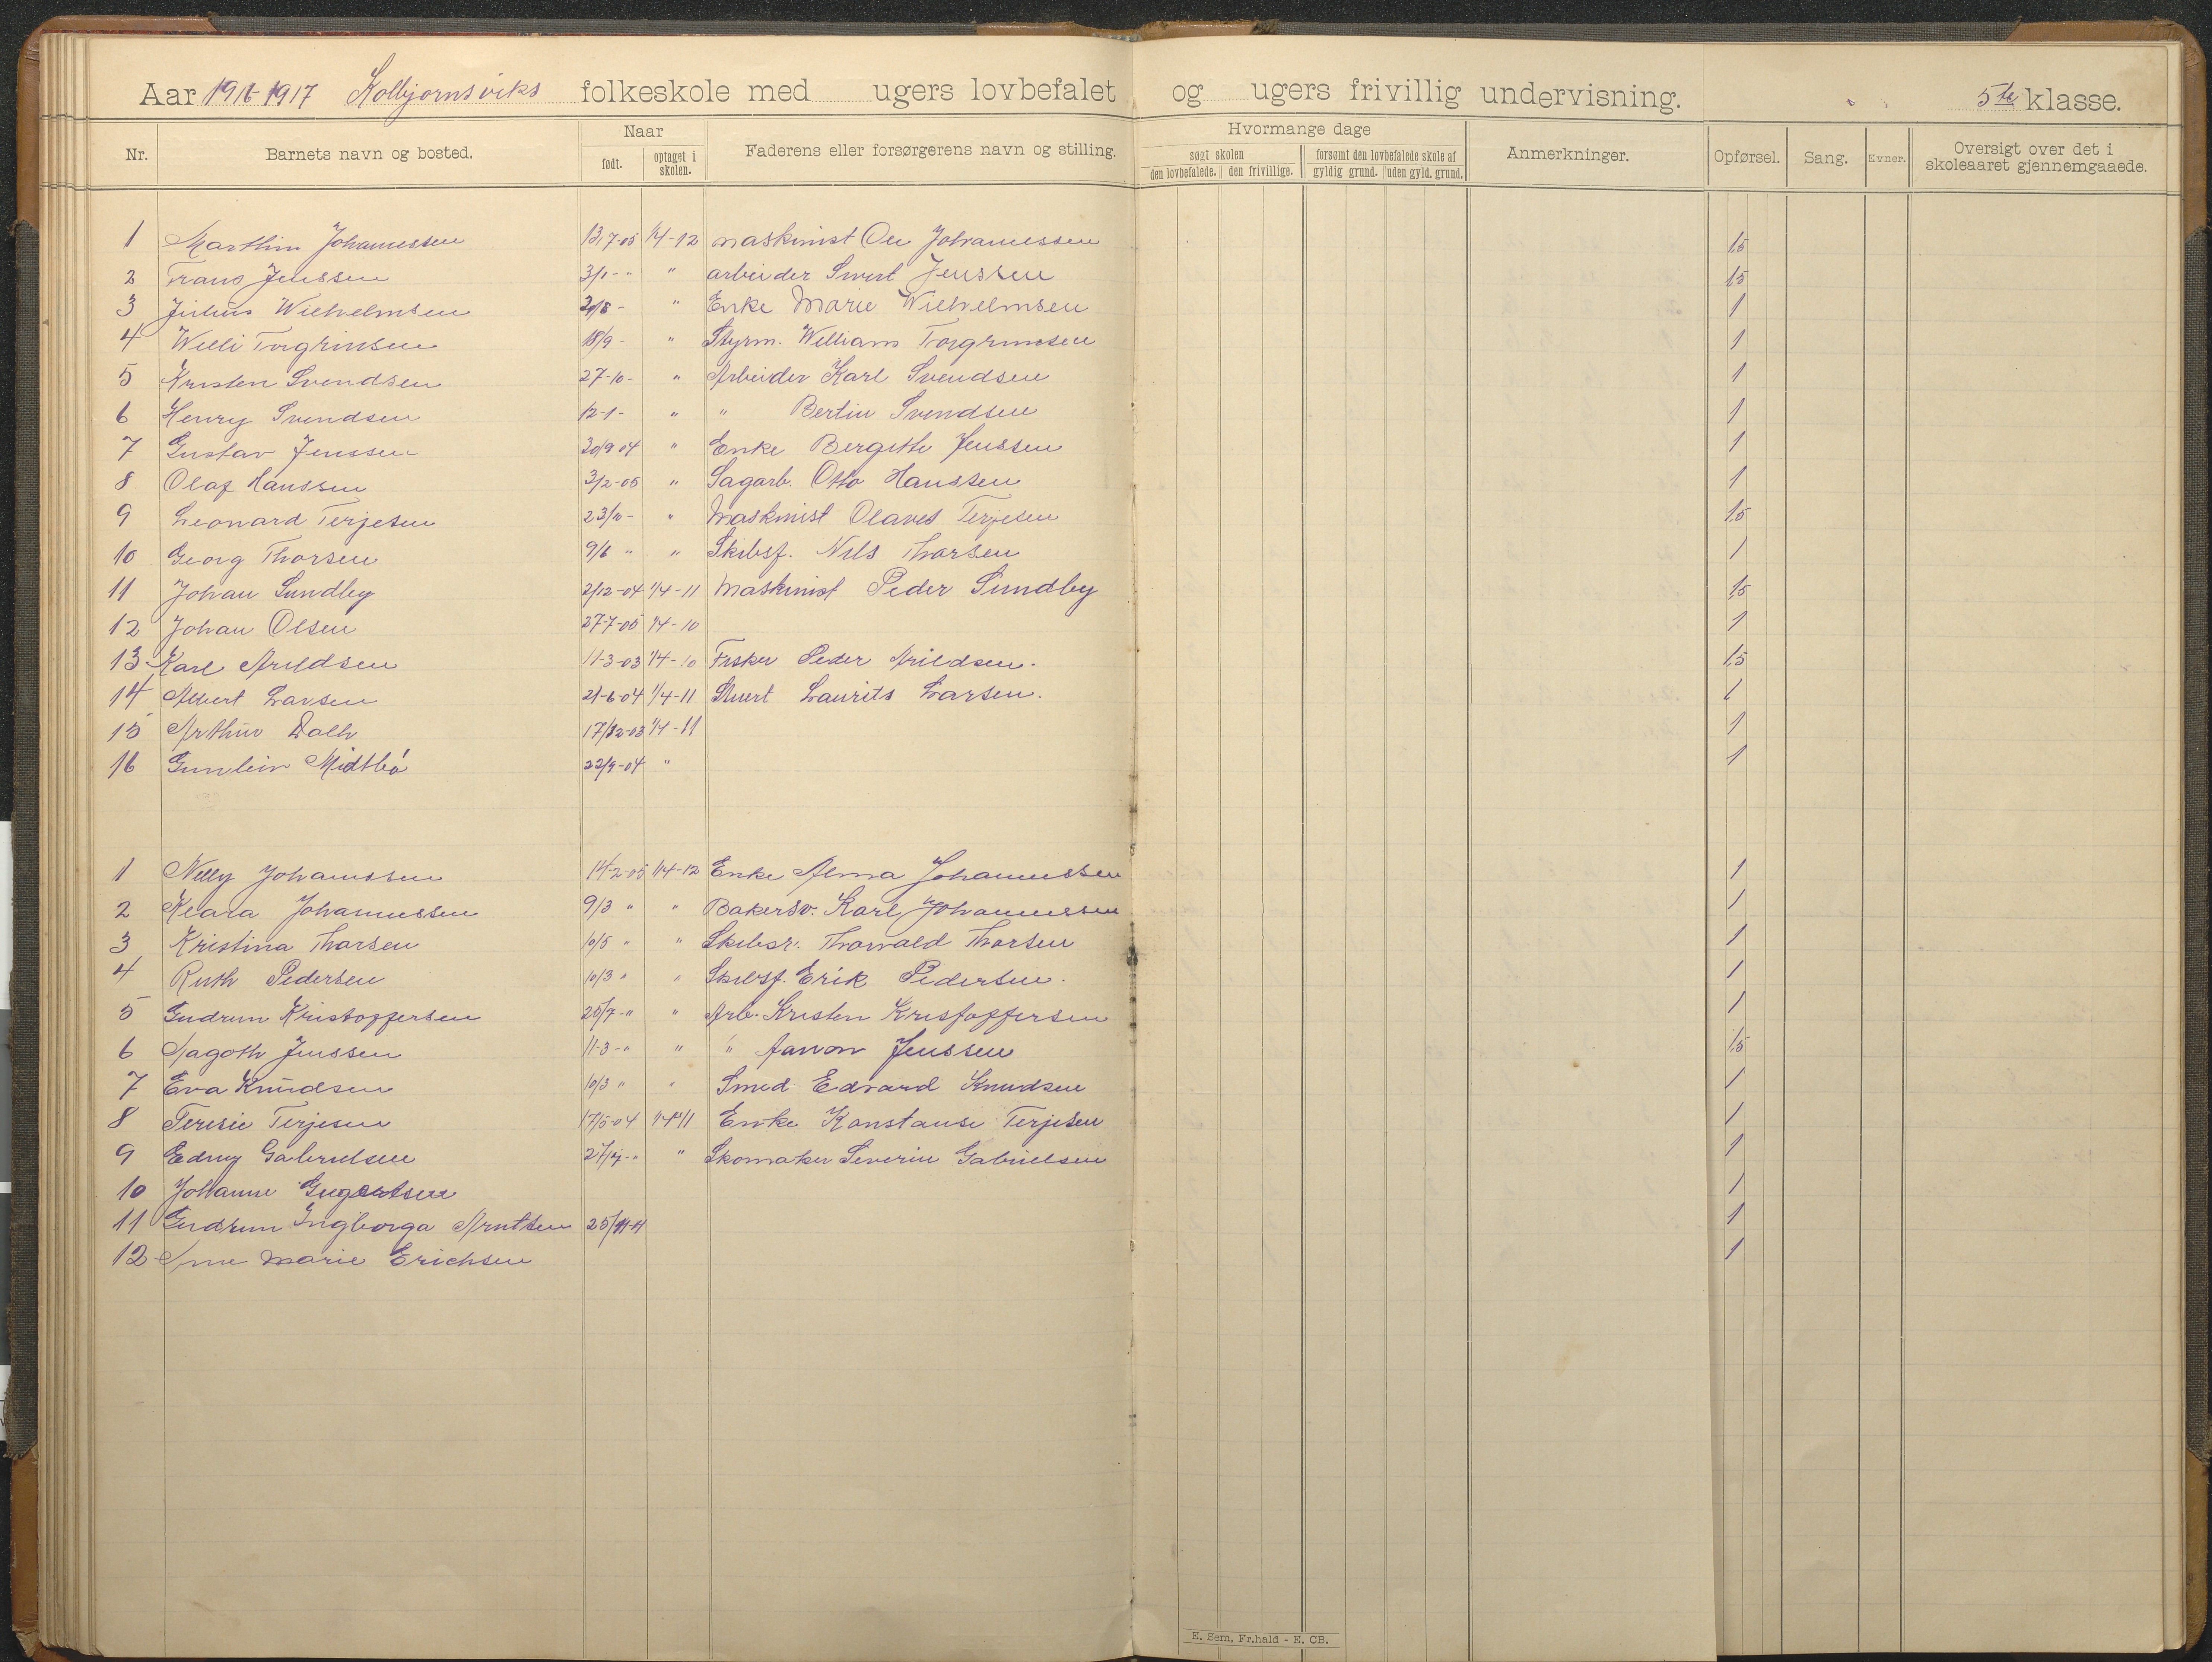 Aar 1916-1917 Kolbjornsviks folkeskole med ugers lovbefalet og ugers frivillig undervisning. 5te klasse.
Nr. Barnets navn og bosted. Naar født. optaget i skolen. Faderens eller forsørgerens navn og stilling. Hvormange dage søgt skolen den lovbefalede. den frivillige. forsømt den lovbefalede skole af gyldig grund. uden gyld. grund. Anmerkninger. Opførsel. Sang. Evner. Oversigt over det i skoleaaret gjennemgaaede.
1 Marthin Johannessen 13/7-05 1/4-12 maskinist Ole Johannessen 1,5
2 Frans Jenssen 3/1- " " arbeider Jenssen 1,5
3 Julius Wilhelmsen 2/8- " Enke Marie Wilhelmsen 1
4 Willi Torgrimsen 18/9- " Styrm. William Torgrimsen 1
5 Kristen Svendsen 27-10- " Arbeider Karl Svendsen 1
6 Henry Svendsen 12-1- " " Bertin Svendsen 1
7 Gustav Jenssen 30/9 04 " Enke Bergitte Jenssen 1
8 Olaf Hanssen 3/2-05 " Sagarb. Otto Hanssen 1
9 Leonard Terjesen 23/10- " Maskinist Olaves Terjesen 1,5
10 Georg Thorsen 9/6 " " Skibsf. Nils Thorsen 1
11 Johan Sundby 2/12-04 1/4-11 Maskinist Peder Sundby 1,5
12 Johan Olsen 27-7-05 1/4-10 1
13 Karl Arildsen 11-3-03 1/4-10 Fisker Peder Arildsen. 1,5
14 Albert Larsen 21-6-04 1/4-11 Stuert Laurits Larsen. 1
15 Arthur Dalh 1/4-11 1
16 Gunlein Midtbö 22/9-04 " 1
1 Nelly Johanssen 14-2-05 1/4-12 Enke Alma Johannessen 1
2 Klara Johannessen 9/3 " " Bakersv. Karl Johannessen 1
3 Kristina Thorsen 10/5 " " Skibsr. Thorvald Thorsen 1
4 Ruth Pedersen 10/3 " " Skibsf. Erik Pedersen. 1
5 Gudrun Kristoffersen 25/7-" " Arb. Kristen Kristoffersen 1
6 Dagoth Jenssen 11-3-" " " Aanon Jenssen 1,5
7 Eva Knudsen 10/3 " " Smed Edvard Knudsen 1
8 Teresie Terjesen 17/5-04 1/4-11 Enke Konstanse Terjesen 1
9 Edny Gabrielsen " Skomaker Severin Gabrielsen 1
10 Johanne 1
11 Gudrun Ingborga Arntsen 1
12 Ane Marie Erichsen 1
E. Sem, Fr.hald - E. CB.